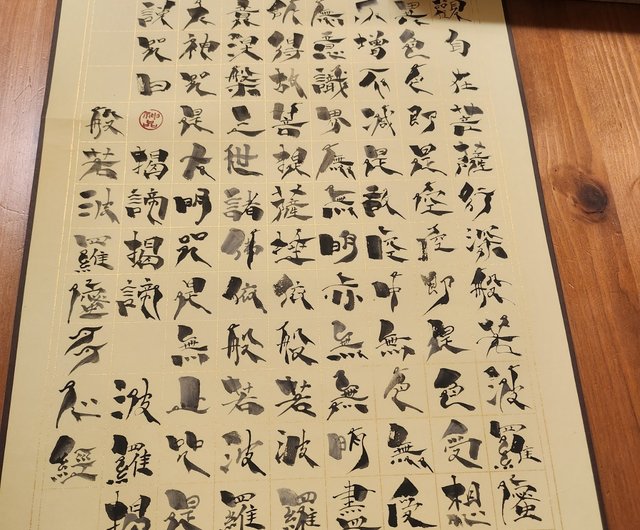 觀自在菩薩行深般若波羅蜜
異色色即是空空即是色受想
不增不減是故空中無色無受
無意識界無無明亦無無明盡
所得故菩提薩埵依般若波羅
竟涅槃三世諸佛依般若波羅
大神咒是大明咒是無上咒是
說咒曰
揭諦揭諦 波羅揭
般若波羅蜜多心經